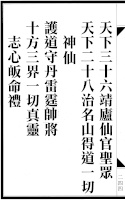 天下三十六靖廬仙官聖眾
天下二十八治名山得道一切
神仙
護道守丹雷霆帥將
十方三界一切真靈
志心皈命禮